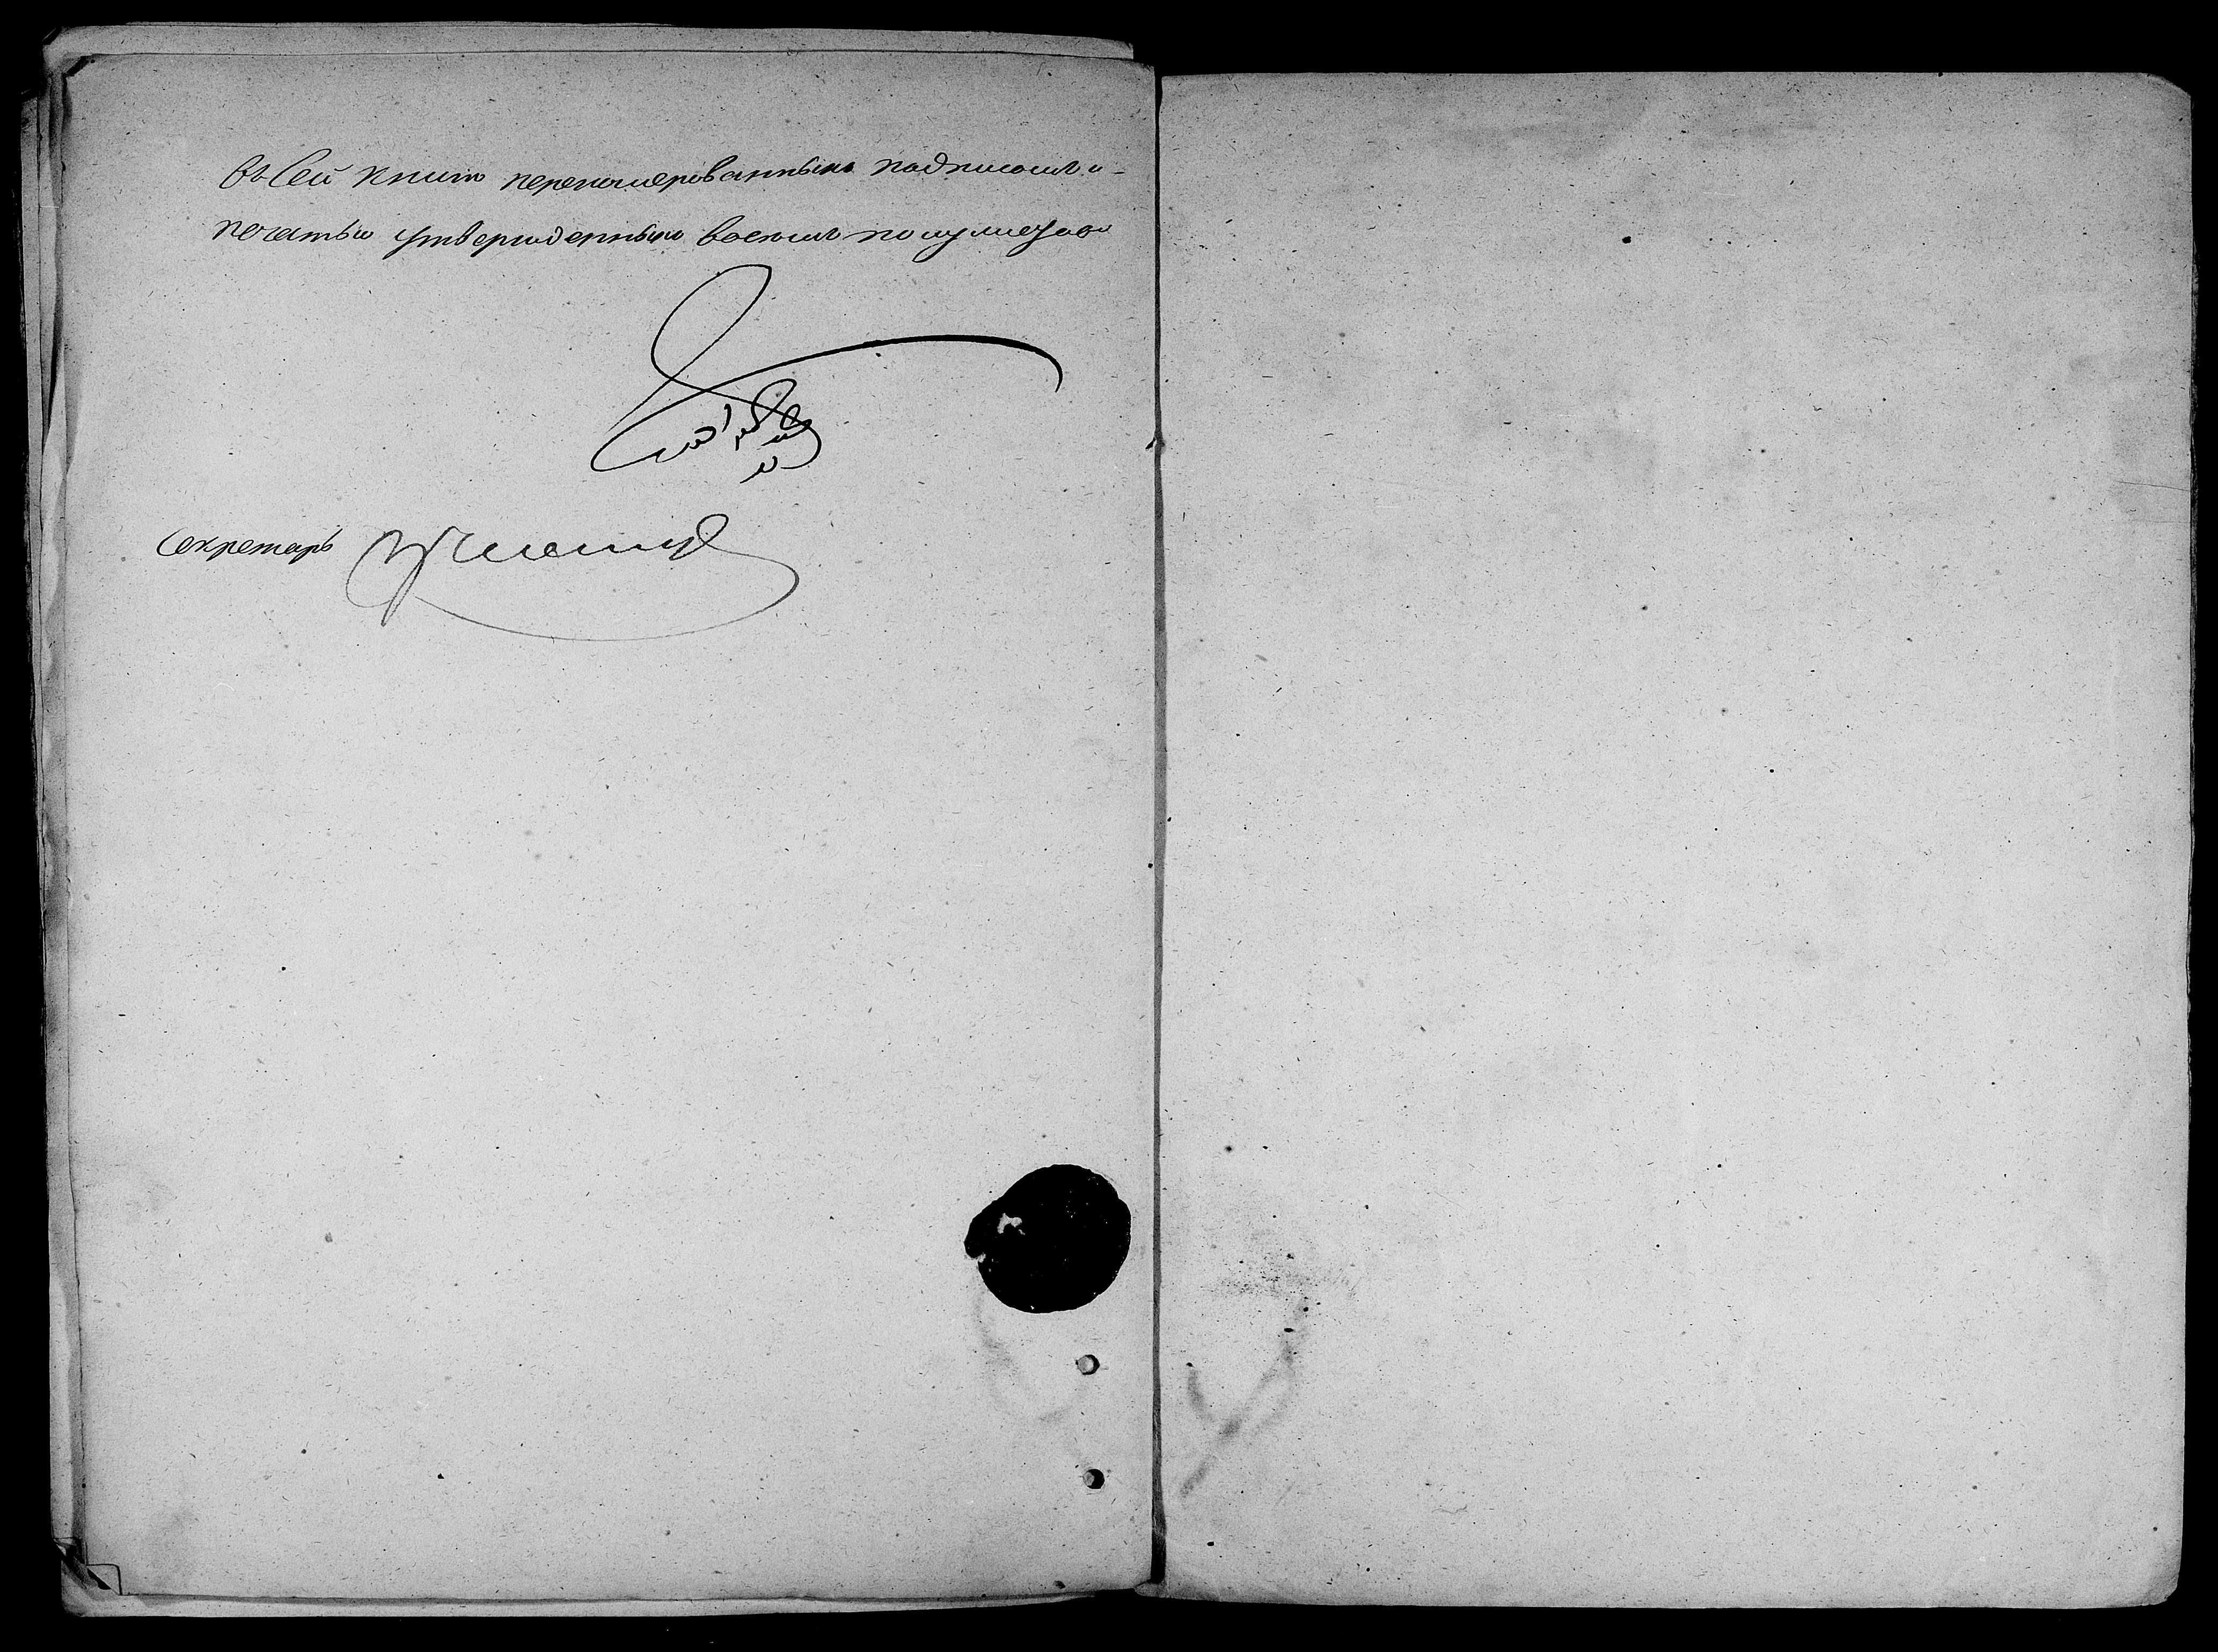 въ Сей книгѣ перенумерованныхъ подписомъ и-
печатью утвержденныхъ восемь полулистовъ
Секретарь